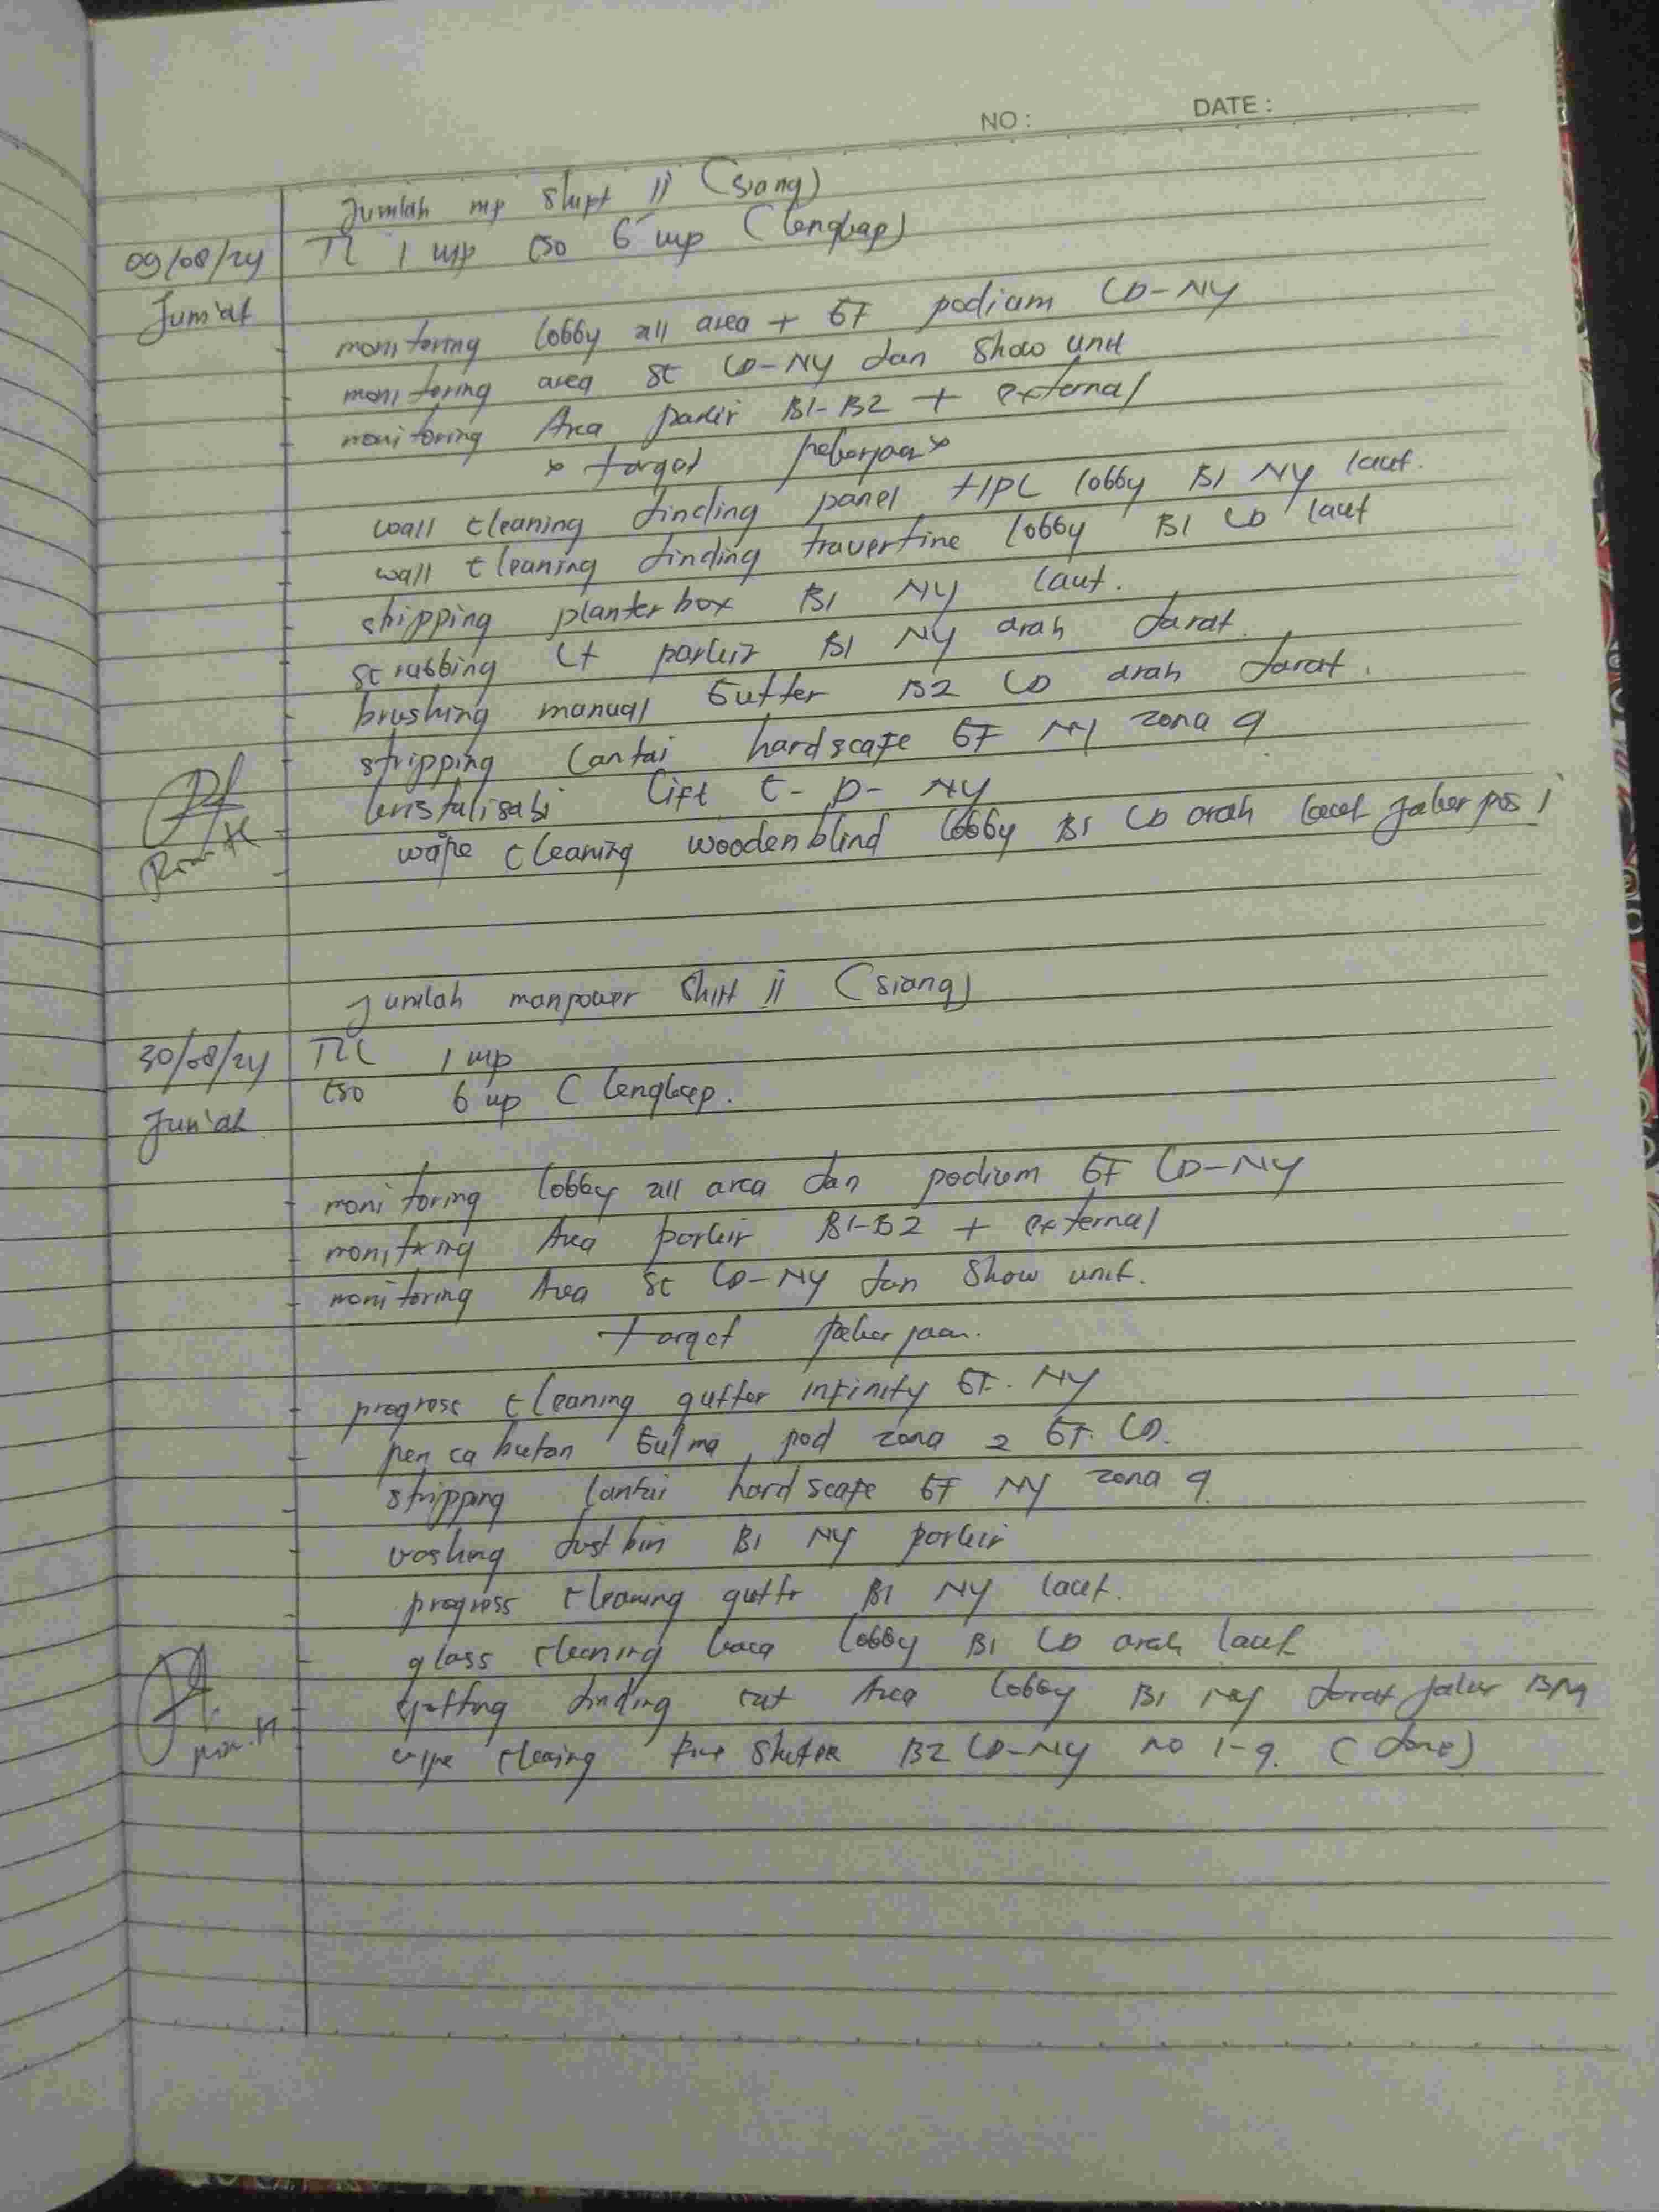 NO :
DATE :
Jumlah mp Shift II (Siang)
09/08/24
TL 1 mp CSO 6 mp (lengkap)
Jum'at
- monitoring lobby all area + GF podium CD-NY
- monitoring area SC CD-NY dan Show unit
- monitoring Area parkir B1-B2 + external
* target pekerjaan *
- wall cleaning dinding panel HPL lobby B1 NY laut.
- wall cleaning dinding travertine lobby B1 CD laut
- stripping planter box B1 NY laut.
- scrubbing Lt parkir B1 NY arah darat.
- brushing manual Gutter B2 CD arah darat.
- stripping lantai hardscape GF NY zona 9
- kristalisasi lift C - D - NY
- wipe cleaning wooden blind lobby B1 CD arah laut jalur pos 1
Jumlah manpower Shift II (Siang)
30/08/24
TL 1 mp
CSO 6 mp (lengkap.
Jum'at
- monitoring lobby all area dan podium GF CD-NY
- monitoring Area parkir B1-B2 + external
- monitoring Area SC CD-NY dan Show unit.
target pekerjaan.
- progress cleaning gutter infinity GF. NY
- pencabutan Gulma pod zona 2 GF. CD.
- stripping lantai hardscape GF NY zona 9
- washing dustbin B1 NY parkir
- progress cleaning guttr B1 NY laut.
- glass cleaning kaca lobby B1 CD arah laut
- spotting dinding cat Area lobby B1 NY darat jalur BM
- wipe cleaing B2 CD-NY no 1-9. (done)